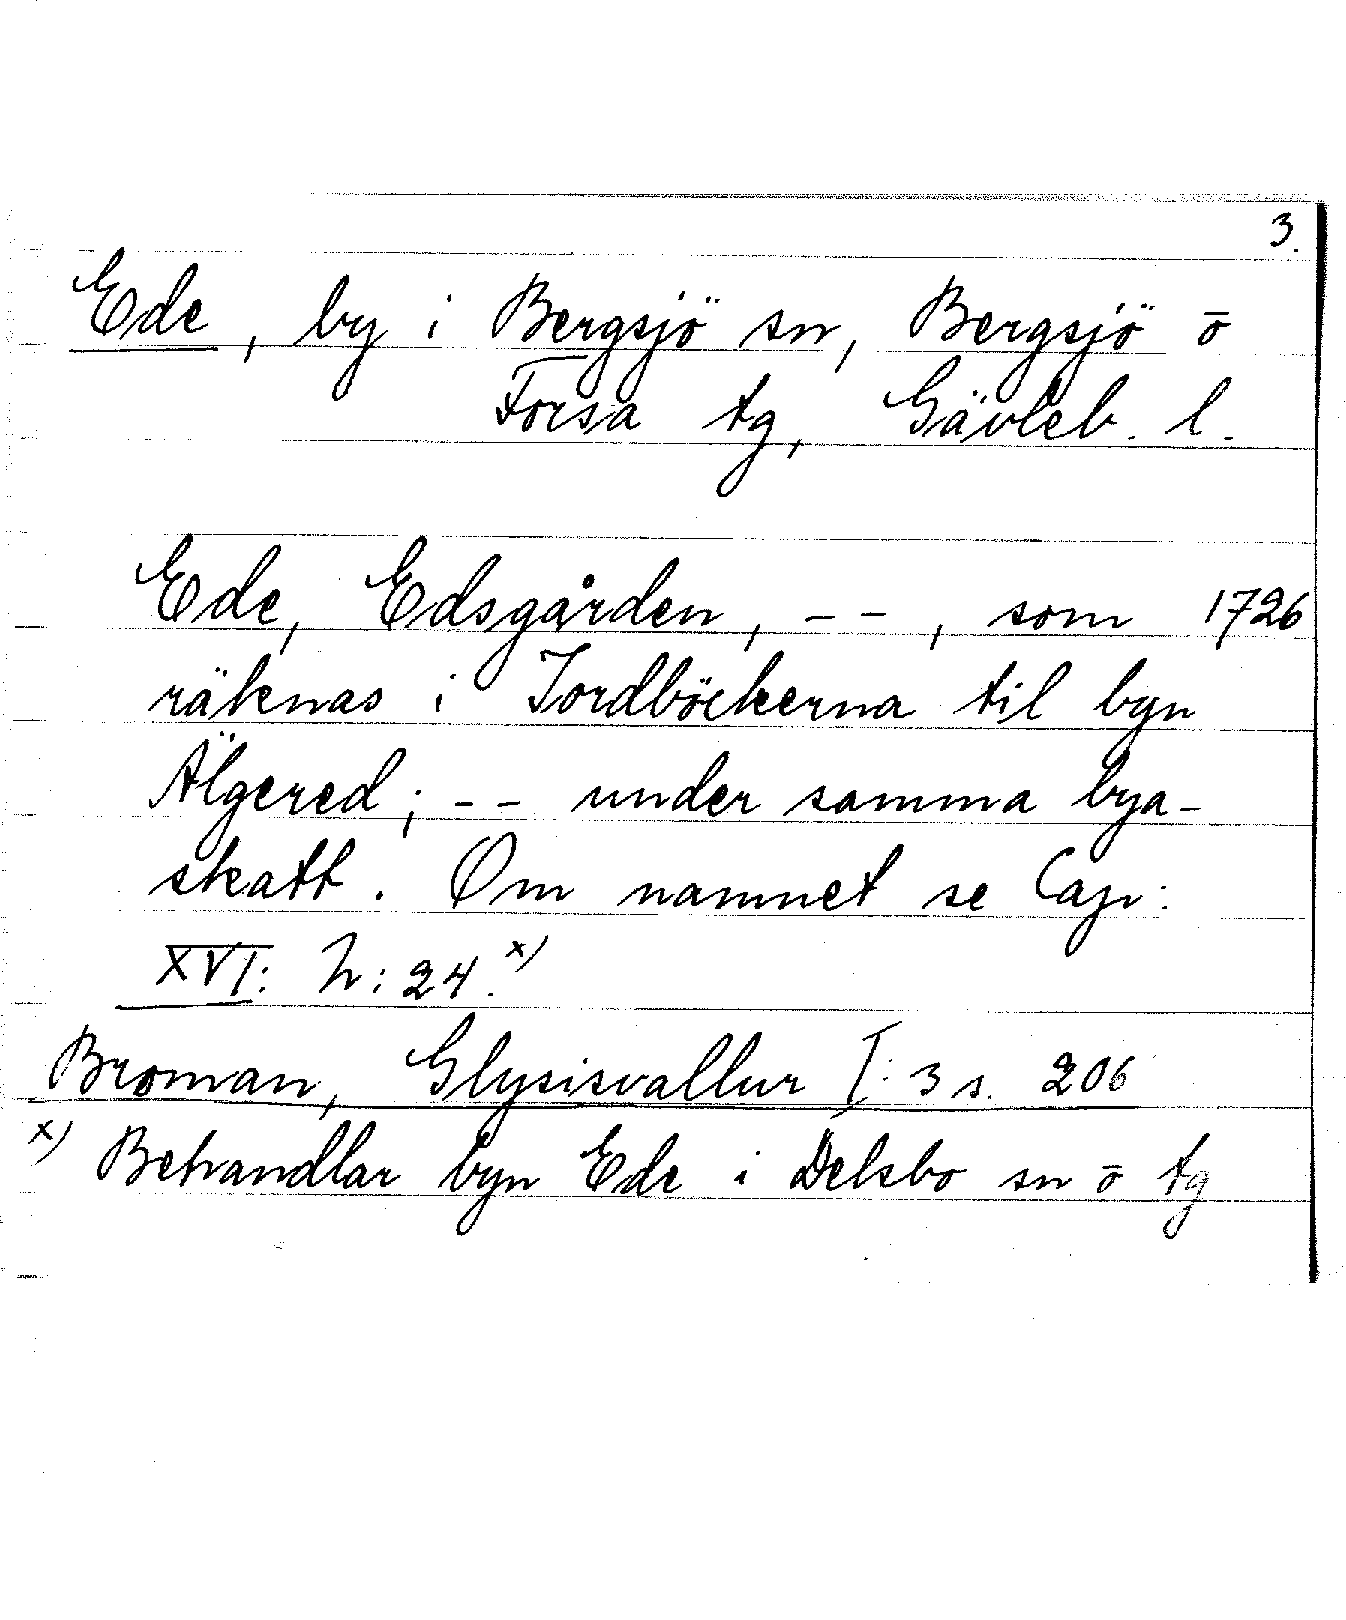 3.
Ede, by i Bergsjö sn, Bergsjö o
Forsa tg, Gävleb. l.
Ede, Edsgården, – –, som 1726
räknas i Jordböckerna til byn
Älgered; – – under samma bya-
skatt. Om namnet se Cap:
XVI: N: 24. x)
Broman, Glysisvallur I: 3 s. 206
x) Behandlar byn Ede i Delsbo sn o tg